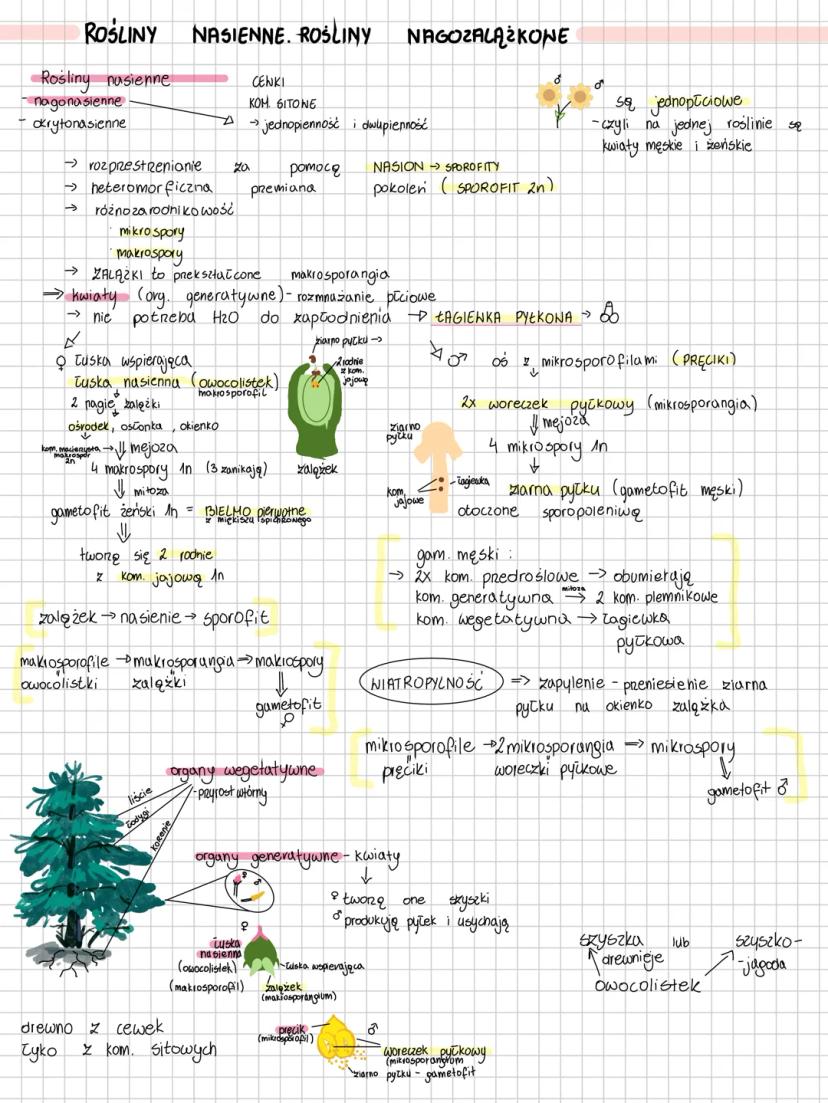 ROŚLINY NASIENNE. ROŚLINY NAGOZALĄŻKOWE
Rośliny nasienne
- nagonasienne
- okrytonasienne
CEWKI
KOM. SITOWE
→ jednopienność i dwupienność
♂ ♂
są jednopłciowe
- czyli na jednej roślinie są
kwiaty męskie i żeńskie
→ rozprzestrzenianie za pomocą NASION → SPOROFITY
→ heteromorficzna przemiana pokoleń (SPOROFIT 2n)
→ różnozarodnikowość
· mikrospory
· makrospory
→ ZALĄŻKI to przekształcone makrosporangia
⇒ kwiaty (org. generatywne) - rozmnażanie płciowe
→ nie potrzeba H2O do zapłodnienia → ŁAGIEWKA PYŁKOWA →
♀ łuska wspierająca
łuska nasienna (owocolistek)
makrosporofil
2 nagie zalążki
ośrodek, osłonka, okienko
kom. macierzysta makrospor 2n → ⇓ mejoza
4 makrospory 1n (3 zanikają)
⇓ mitoza
gametofit żeński 1n = BIELMO pierwotne
z miękiszu spichrzowego
⇓
tworzą się 2 rodnie
z kom. jajową 1n
ziarno pyłku →
2 rodnie
z kom.
jajową
zalążek
♂ oś z mikrosporofilami (PRĘCIKI)
2x woreczek pyłkowy (mikrosporangia)
⇓ mejoza
4 mikrospory 1n
↓
ziarna pyłku (gametofit męski)
otoczone sporopoleniną
ziarno
pyłku
kom.
jajowe
łagiewka
[zalążek → nasienie → sporofit]
gam. męski :
→ 2x kom. przedroślowe → obumierają
kom. generatywna mitoza ⇒ 2 kom. plemnikowe
kom. wegetatywna → łagiewka
pyłkowa
makrosporofile → makrosporangia ⇒ makrospory
owocolistki zalążki
⇓
gametofit
♀
WIATROPYLNOŚĆ ⇒ zapylenie - przeniesienie ziarna
pyłku na okienko zalążka
mikrosporofile → 2 mikrosporangia ⇒ mikrospory
pręciki woreczki pyłkowe
⇓
gametofit ♂
organy wegetatywne
- przyrost wtórny
liście
łodygi
korzenie
organy generatywne - kwiaty
♀ ♂
↓
♀ tworzą one szyszki
♂ produkują pyłek i usychają
♀
łuska
nasienna
(owocolistek)
(makrosporofil)
łuska wspierająca
zalążek
(makrosporangium)
szyszka lub szyszko-
drewnieje -jagoda
owocolistek
drewno z cewek
łyko z kom. sitowych
pręcik
(mikrosporofil)
♂
woreczek pyłkowy
(mikrosporangium
ziarno pyłku - gametofit